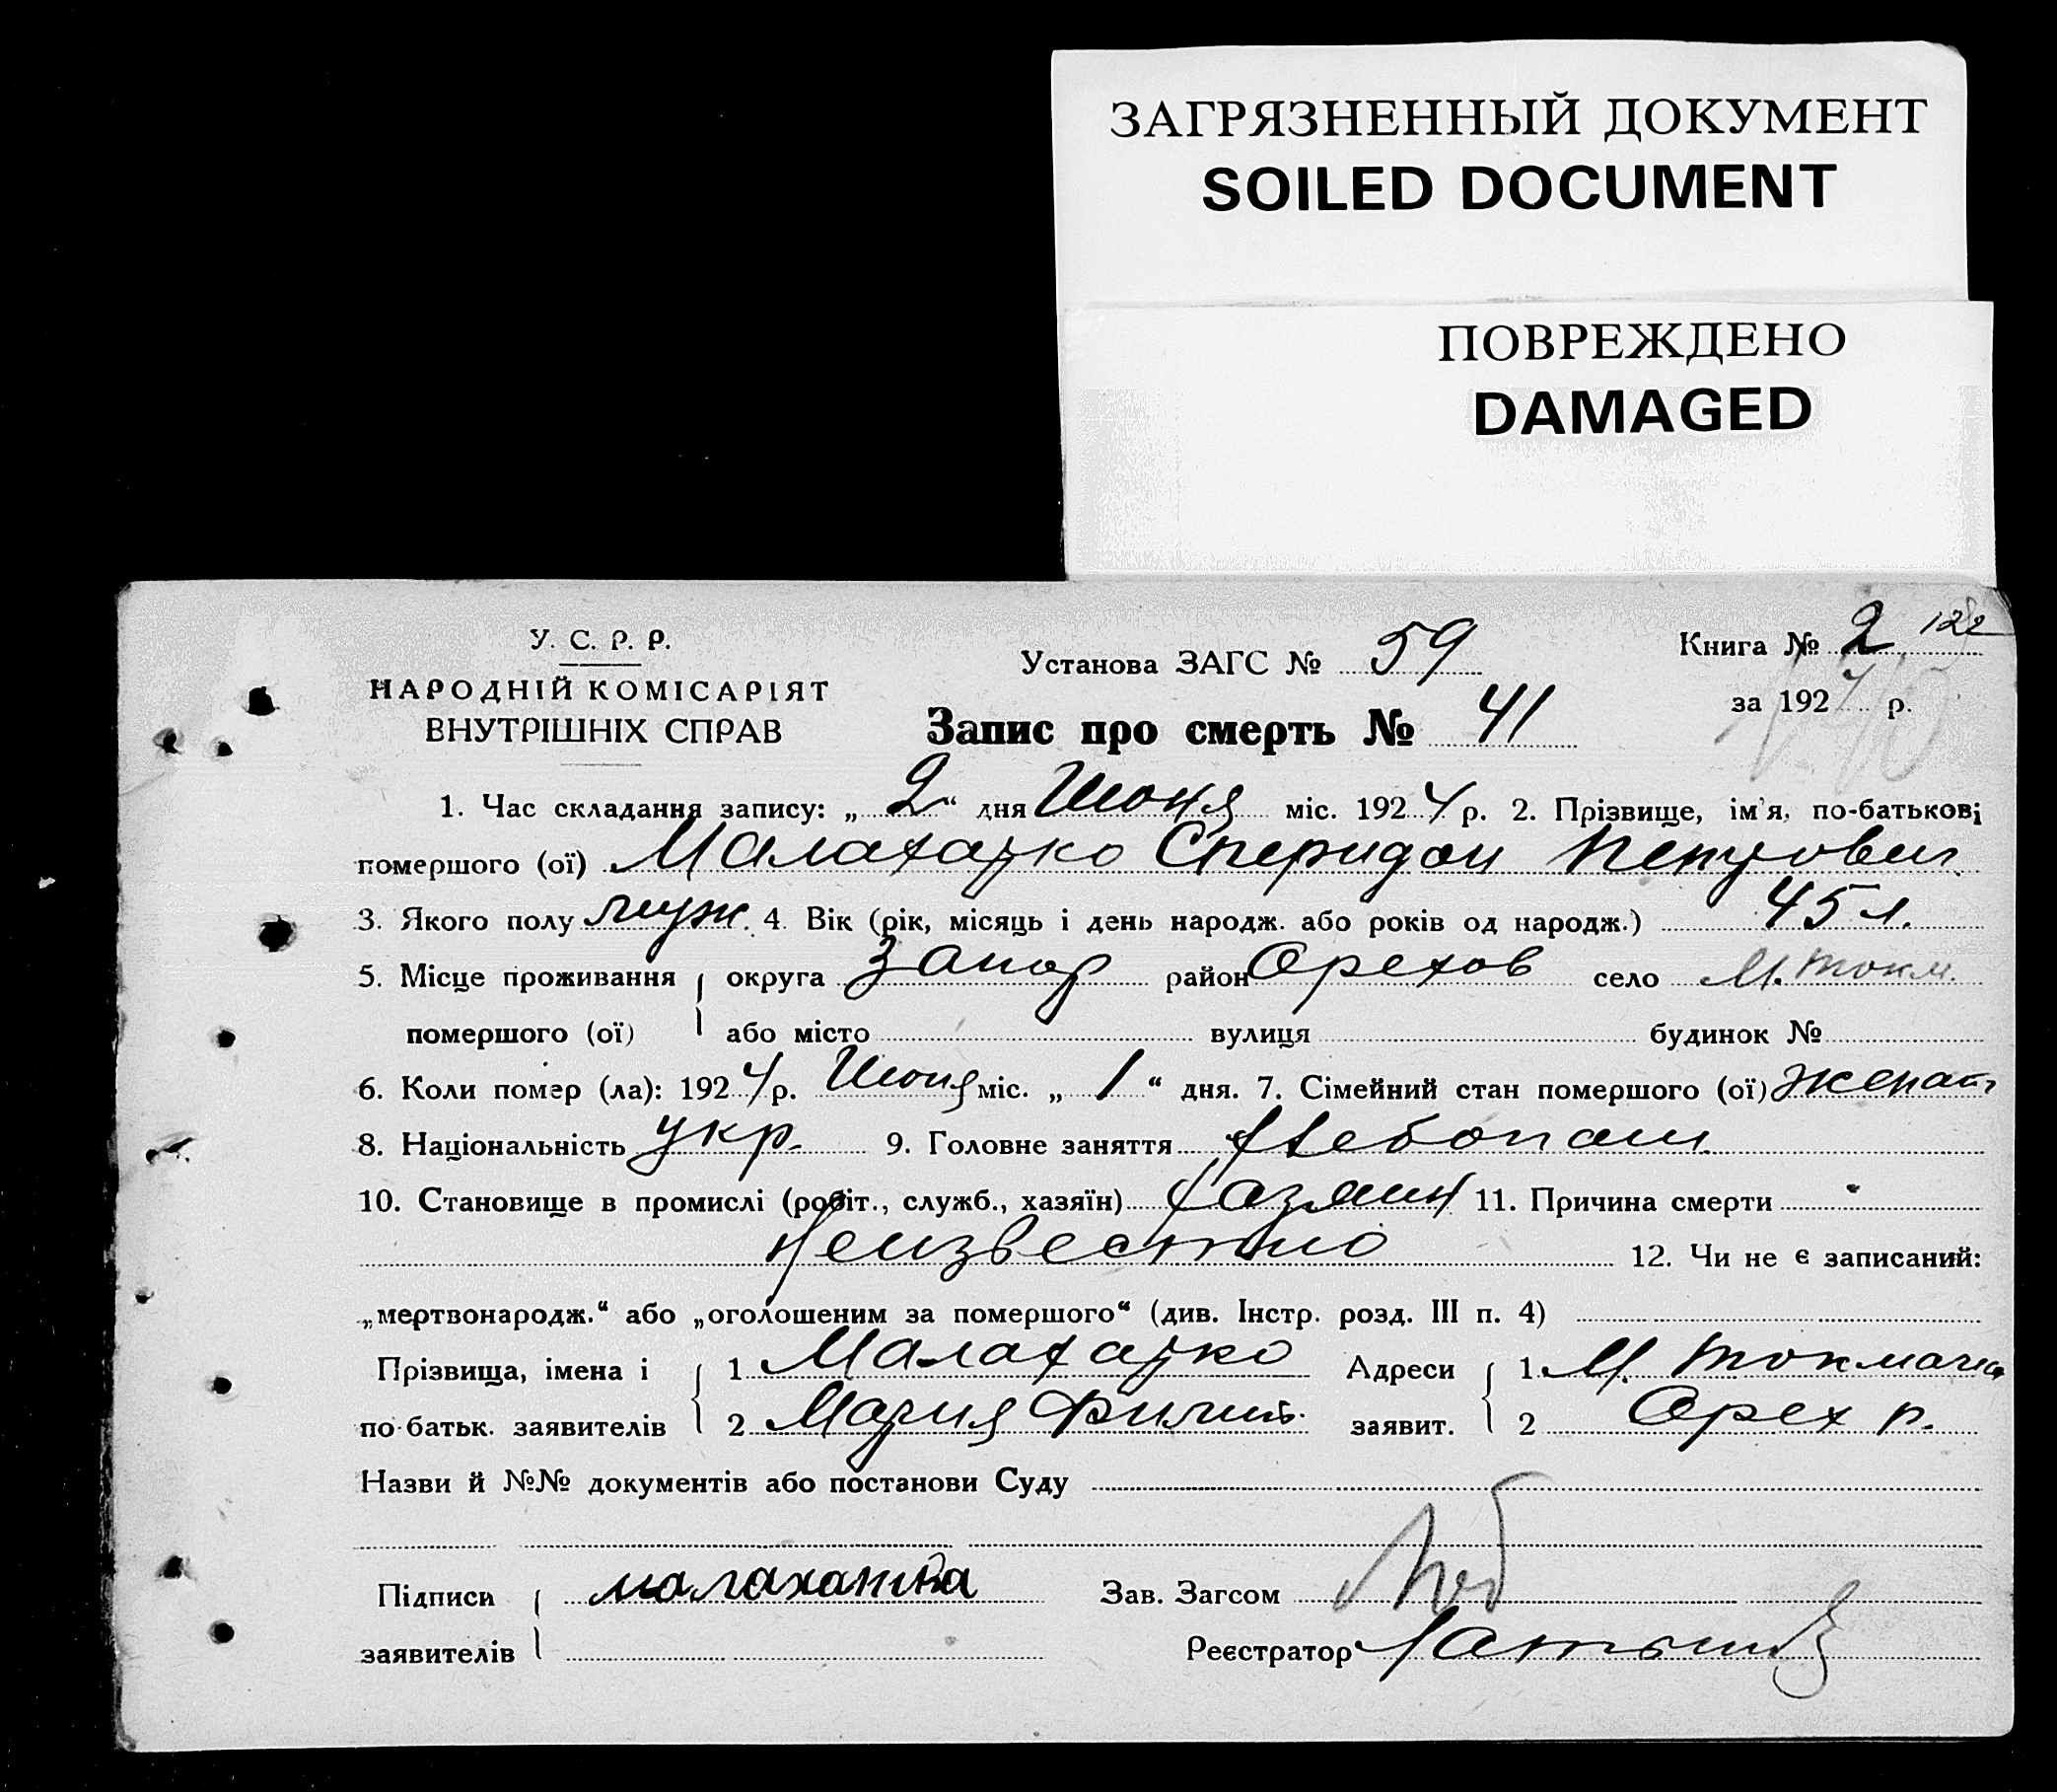 ЗАГРЯЗНЕННЫЙ ДОКУМЕНТ
SOILED DOCUMENT
ПОВРЕЖДЕНО
DAMAGED
У. С. Р. Р.
НАРОДНІЙ КОМІСАРІЯТ
ВНУТРІШНІХ СПРАВ
Установа ЗАГС № 59
Книга № 2
за 1924 р.
Запис про смерть № 41
1. Час складання запису: „ 2 “ дня Июня міс. 1924 р. 2. Прізвище, ім'я, по-батькові
помершого (ої) Малахатко Спиридон Петрович
3. Якого полу муж. 4. Вік (рік, місяць і день народж. або років од народж.) 45 л.
5. Місце проживання округа Запор район Орехов село М. Токм.
помершого (ої) або місто вулиця будинок №
6. Коли помер (ла): 1924 р. Июня міс. „ 1 “ дня. 7. Сімейний стан помершого (ої) женат
8. Національність укр. 9. Головне заняття Хлебопаш.
10. Становище в промислі (робіт., служб., хазяїн) Хазяин 11. Причина смерти
Неизвестно 12. Чи не є записаний:
„мертвонародж.“ або „оголошеним за помершого“ (див. Інстр. розд. III п. 4)
Прізвища, імена і 1 Малахатко Адреси 1 М. Токмачка
по батьк. заявителів 2 Мария Филип. заявит. 2 Орех р.
Назви й №№ документів або постанови Суду
Підписи малахатка Зав. Загсом
заявителів Реєстратор